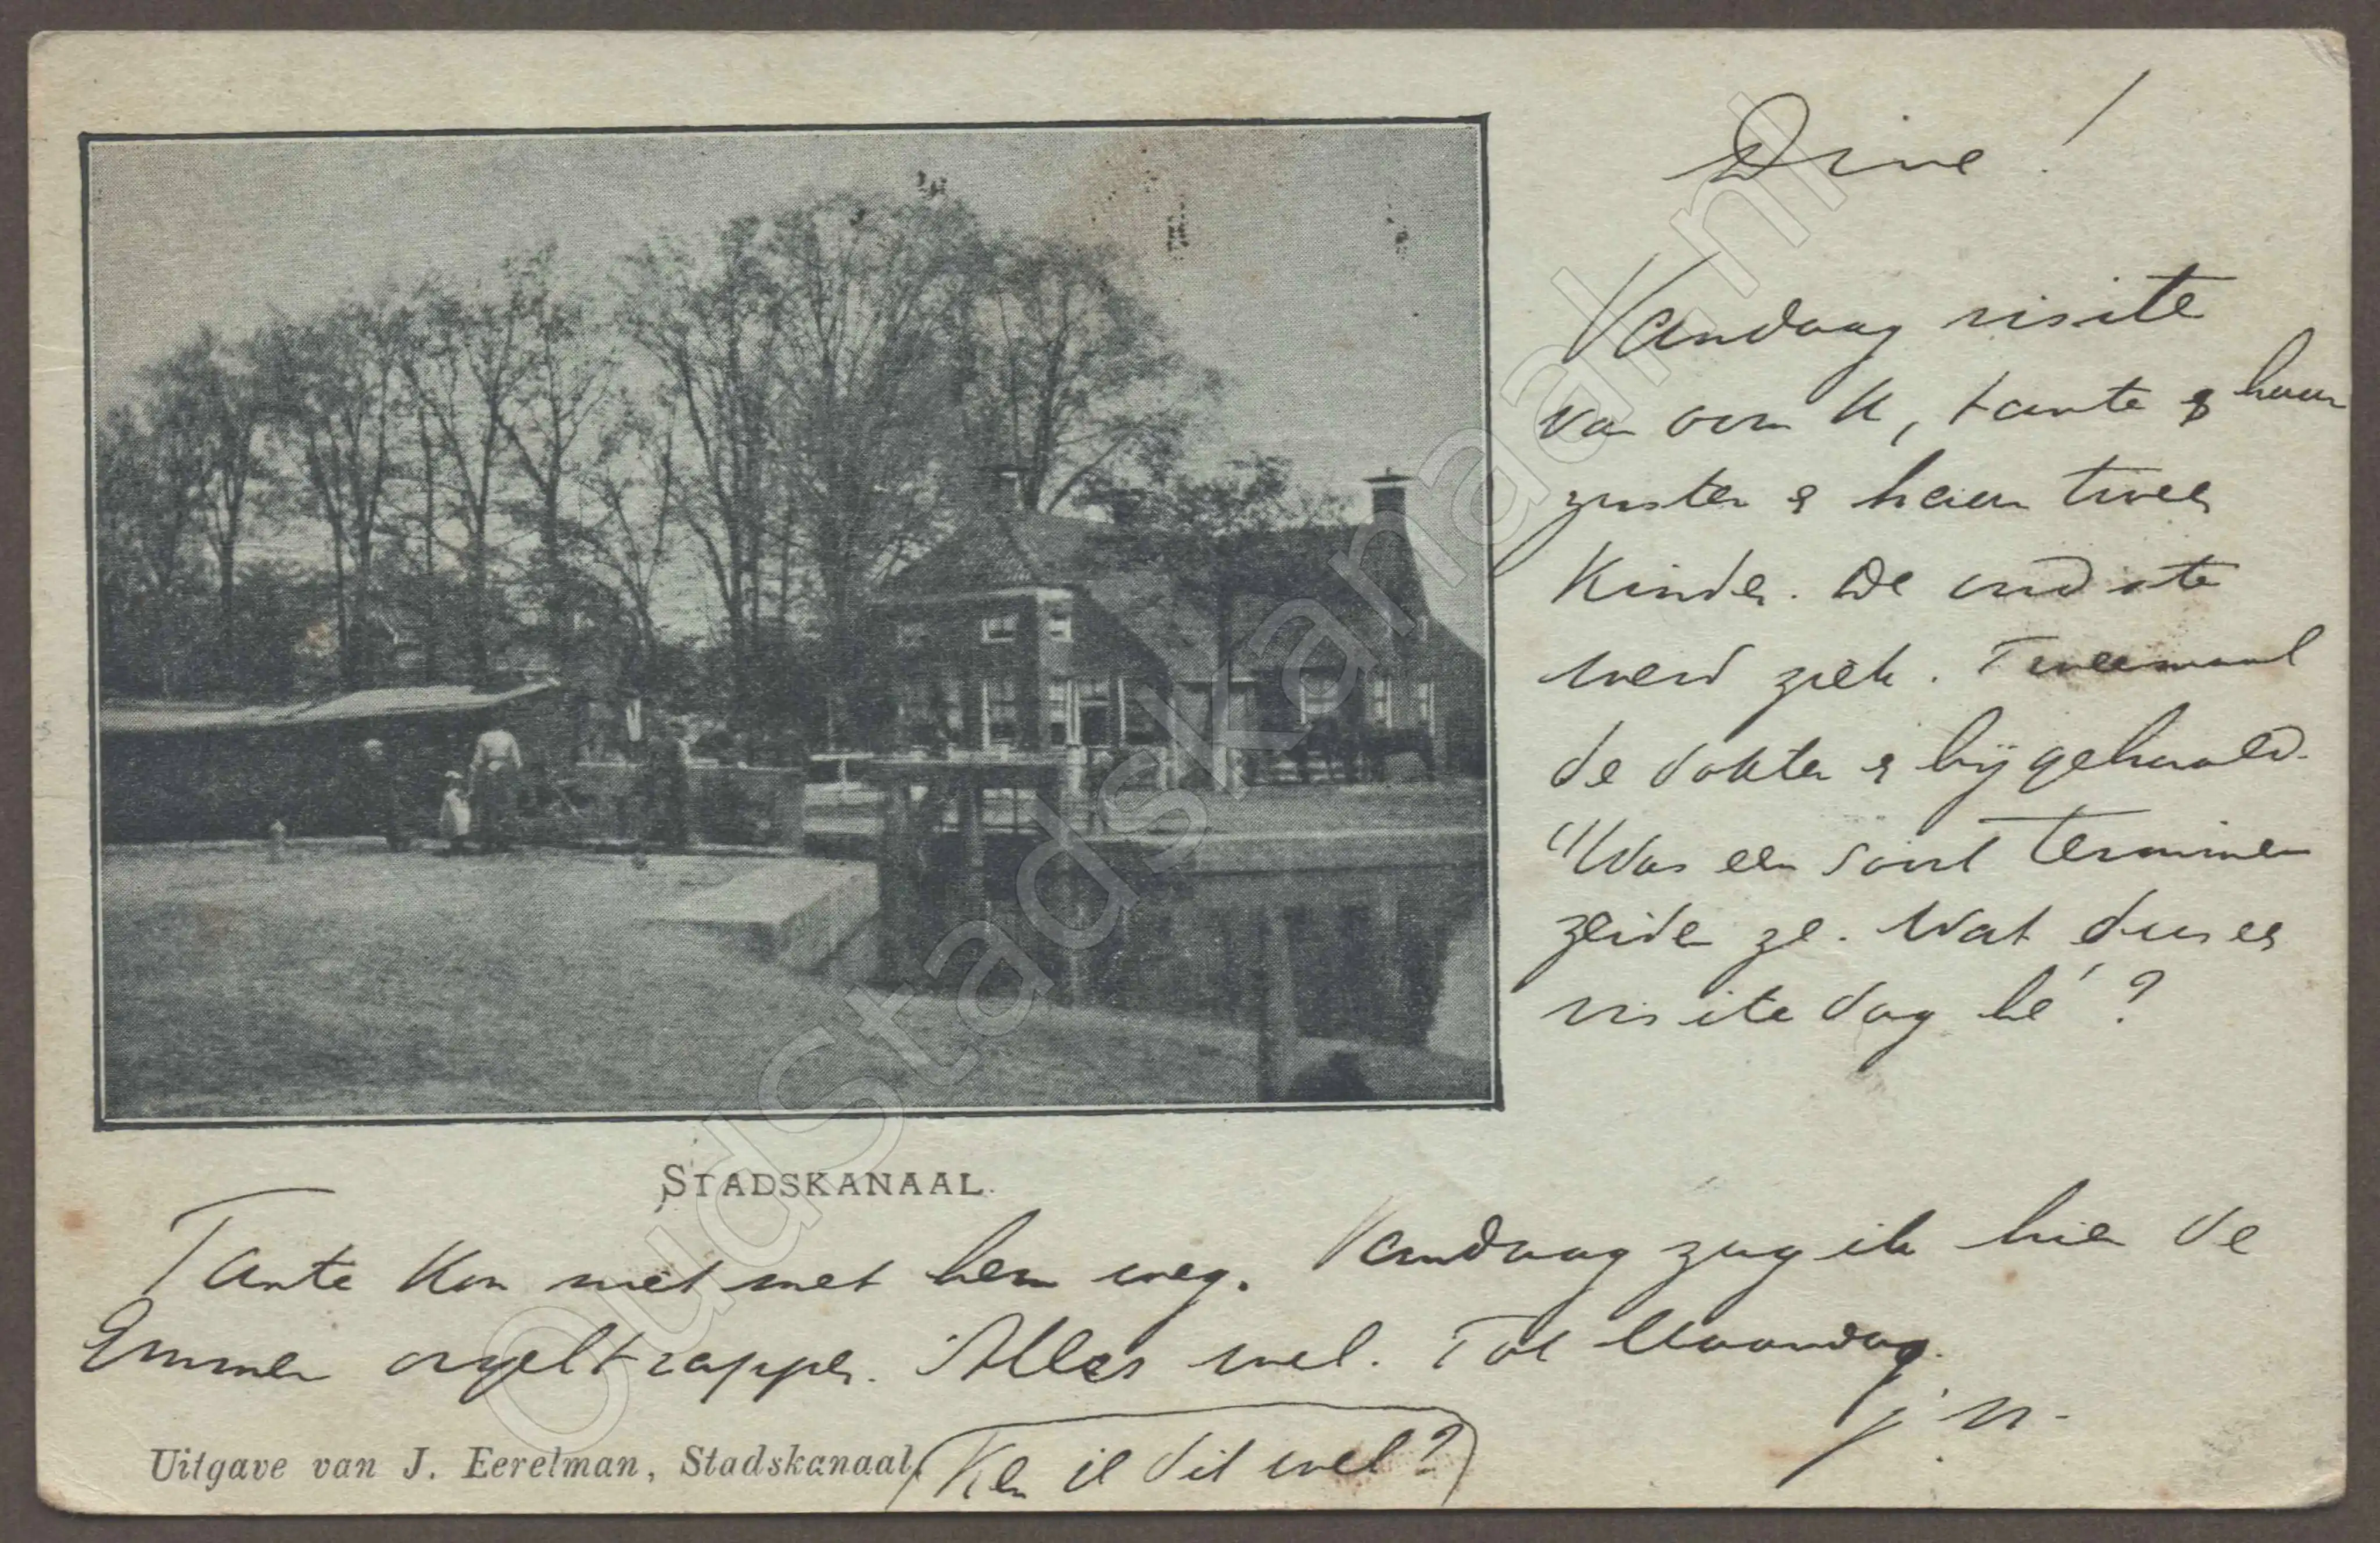 Dine!
Vandaag visite
van oom K, tante & haar
zuster & haar twee
Kinder. De oudste
werd ziek. Tweemaal
de dokter er bij gehaald.
"Was een soort
zeiden ze. Wat dus een
visite dag hé?
STADSKANAAL.
Tante kon niet met hem weg. Vandaag zag ik hier de
Emmer orgeltrapper. Alles wel. Tot Maandag.
J. N.
Uitgave van J. Eerelman, Stadskanaal.
Ken je dit wel?
OudStadskanaal.nl